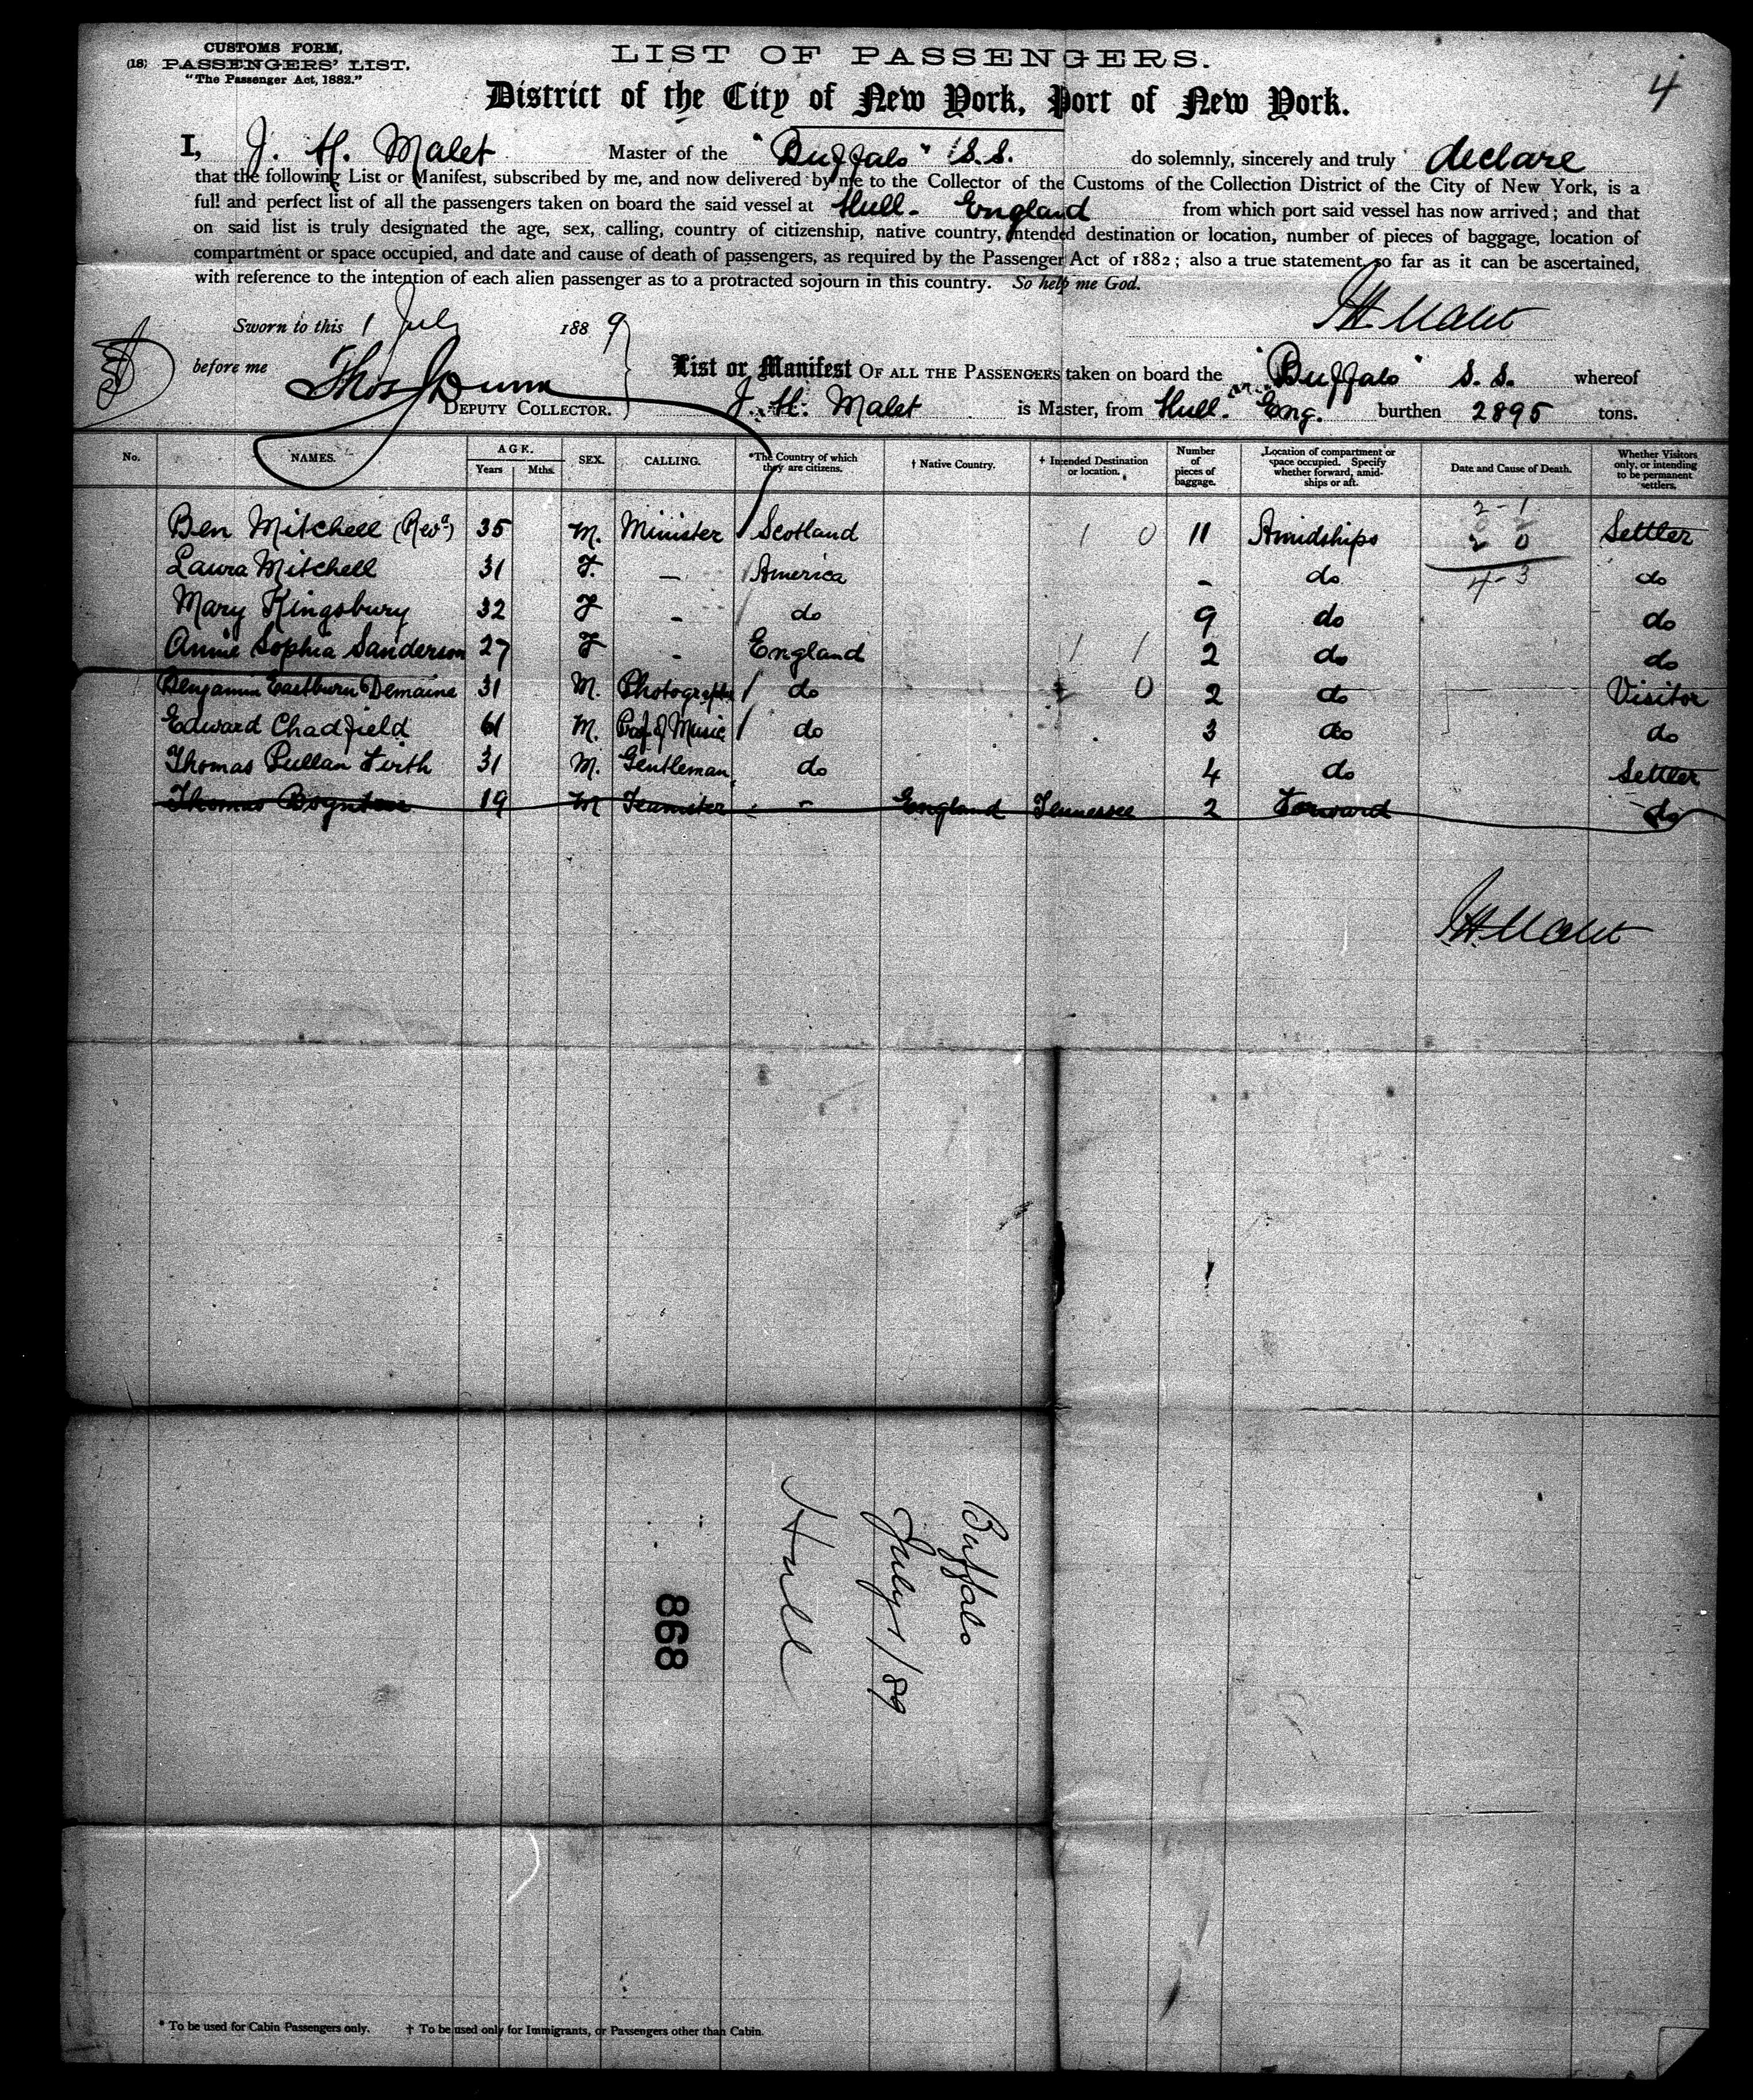 CUSTOMS FORM,
(18) PASSENGERS' LIST.
"The Passenger Act, 1882."
LIST OF PASSENGERS.
4
District of the City of New York, Port of New York.
I, J. H. Malet Master of the "Buffalo" S.S. do solemnly, sincerely and truly declare
that the following List or Manifest, subscribed by me, and now delivered by me to the Collector of the Customs of the Collection District of the City of New York, is a
full and perfect list of all the passengers taken on board the said vessel at Hull. England from which port said vessel has now arrived; and that
on said list is truly designated the age, sex, calling, country of citizenship, native country, intended destination or location, number of pieces of baggage, location of
compartment or space occupied, and date and cause of death of passengers, as required by the Passenger Act of 1882; also a true statement, so far as it can be ascertained,
with reference to the intention of each alien passenger as to a protracted sojourn in this country. So help me God.
J H Malet
Sworn to this 1 July 1889
before me Thos J Dunn
DEPUTY COLLECTOR.
List or Manifest OF ALL THE PASSENGERS taken on board the "Buffalo" S.S. whereof
J. H. Malet is Master, from Hull. Eng. burthen 2895 tons.
No. NAMES. AGE. Years Mths. SEX. CALLING. *The Country of which they are citizens. † Native Country. † Intended Destination or location. Number of pieces of baggage. Location of compartment or space occupied. Specify whether forward, amidships or aft. Date and Cause of Death. Whether Visitors only, or intending to be permanent settlers.
Ben Mitchell (Revd) 35 M. Minister Scotland 1 0 11 Amidships 2-1 2 0 Settler
Laura Mitchell 31 F. - America - do 4-3 do
Mary Kingsbury 32 F - do 9 do do
Annie Sophia Sanderson 27 F - England 1 1 2 do do
Benjamin Eastburn Demaine 31 M. Photographer do 0 2 do Visitor
Edward Chadfield 61 M. Prof of Music do 3 do do
Thomas Pullan Firth 31 M. Gentleman do 4 do Settler
Thomas Boynton 19 M Teamster - England Tennessee 2 Forward do
J.H. Malet
Buffalo
July 1/89
Hull
868
* To be used for Cabin Passengers only. † To be used only for Immigrants, or Passengers other than Cabin.